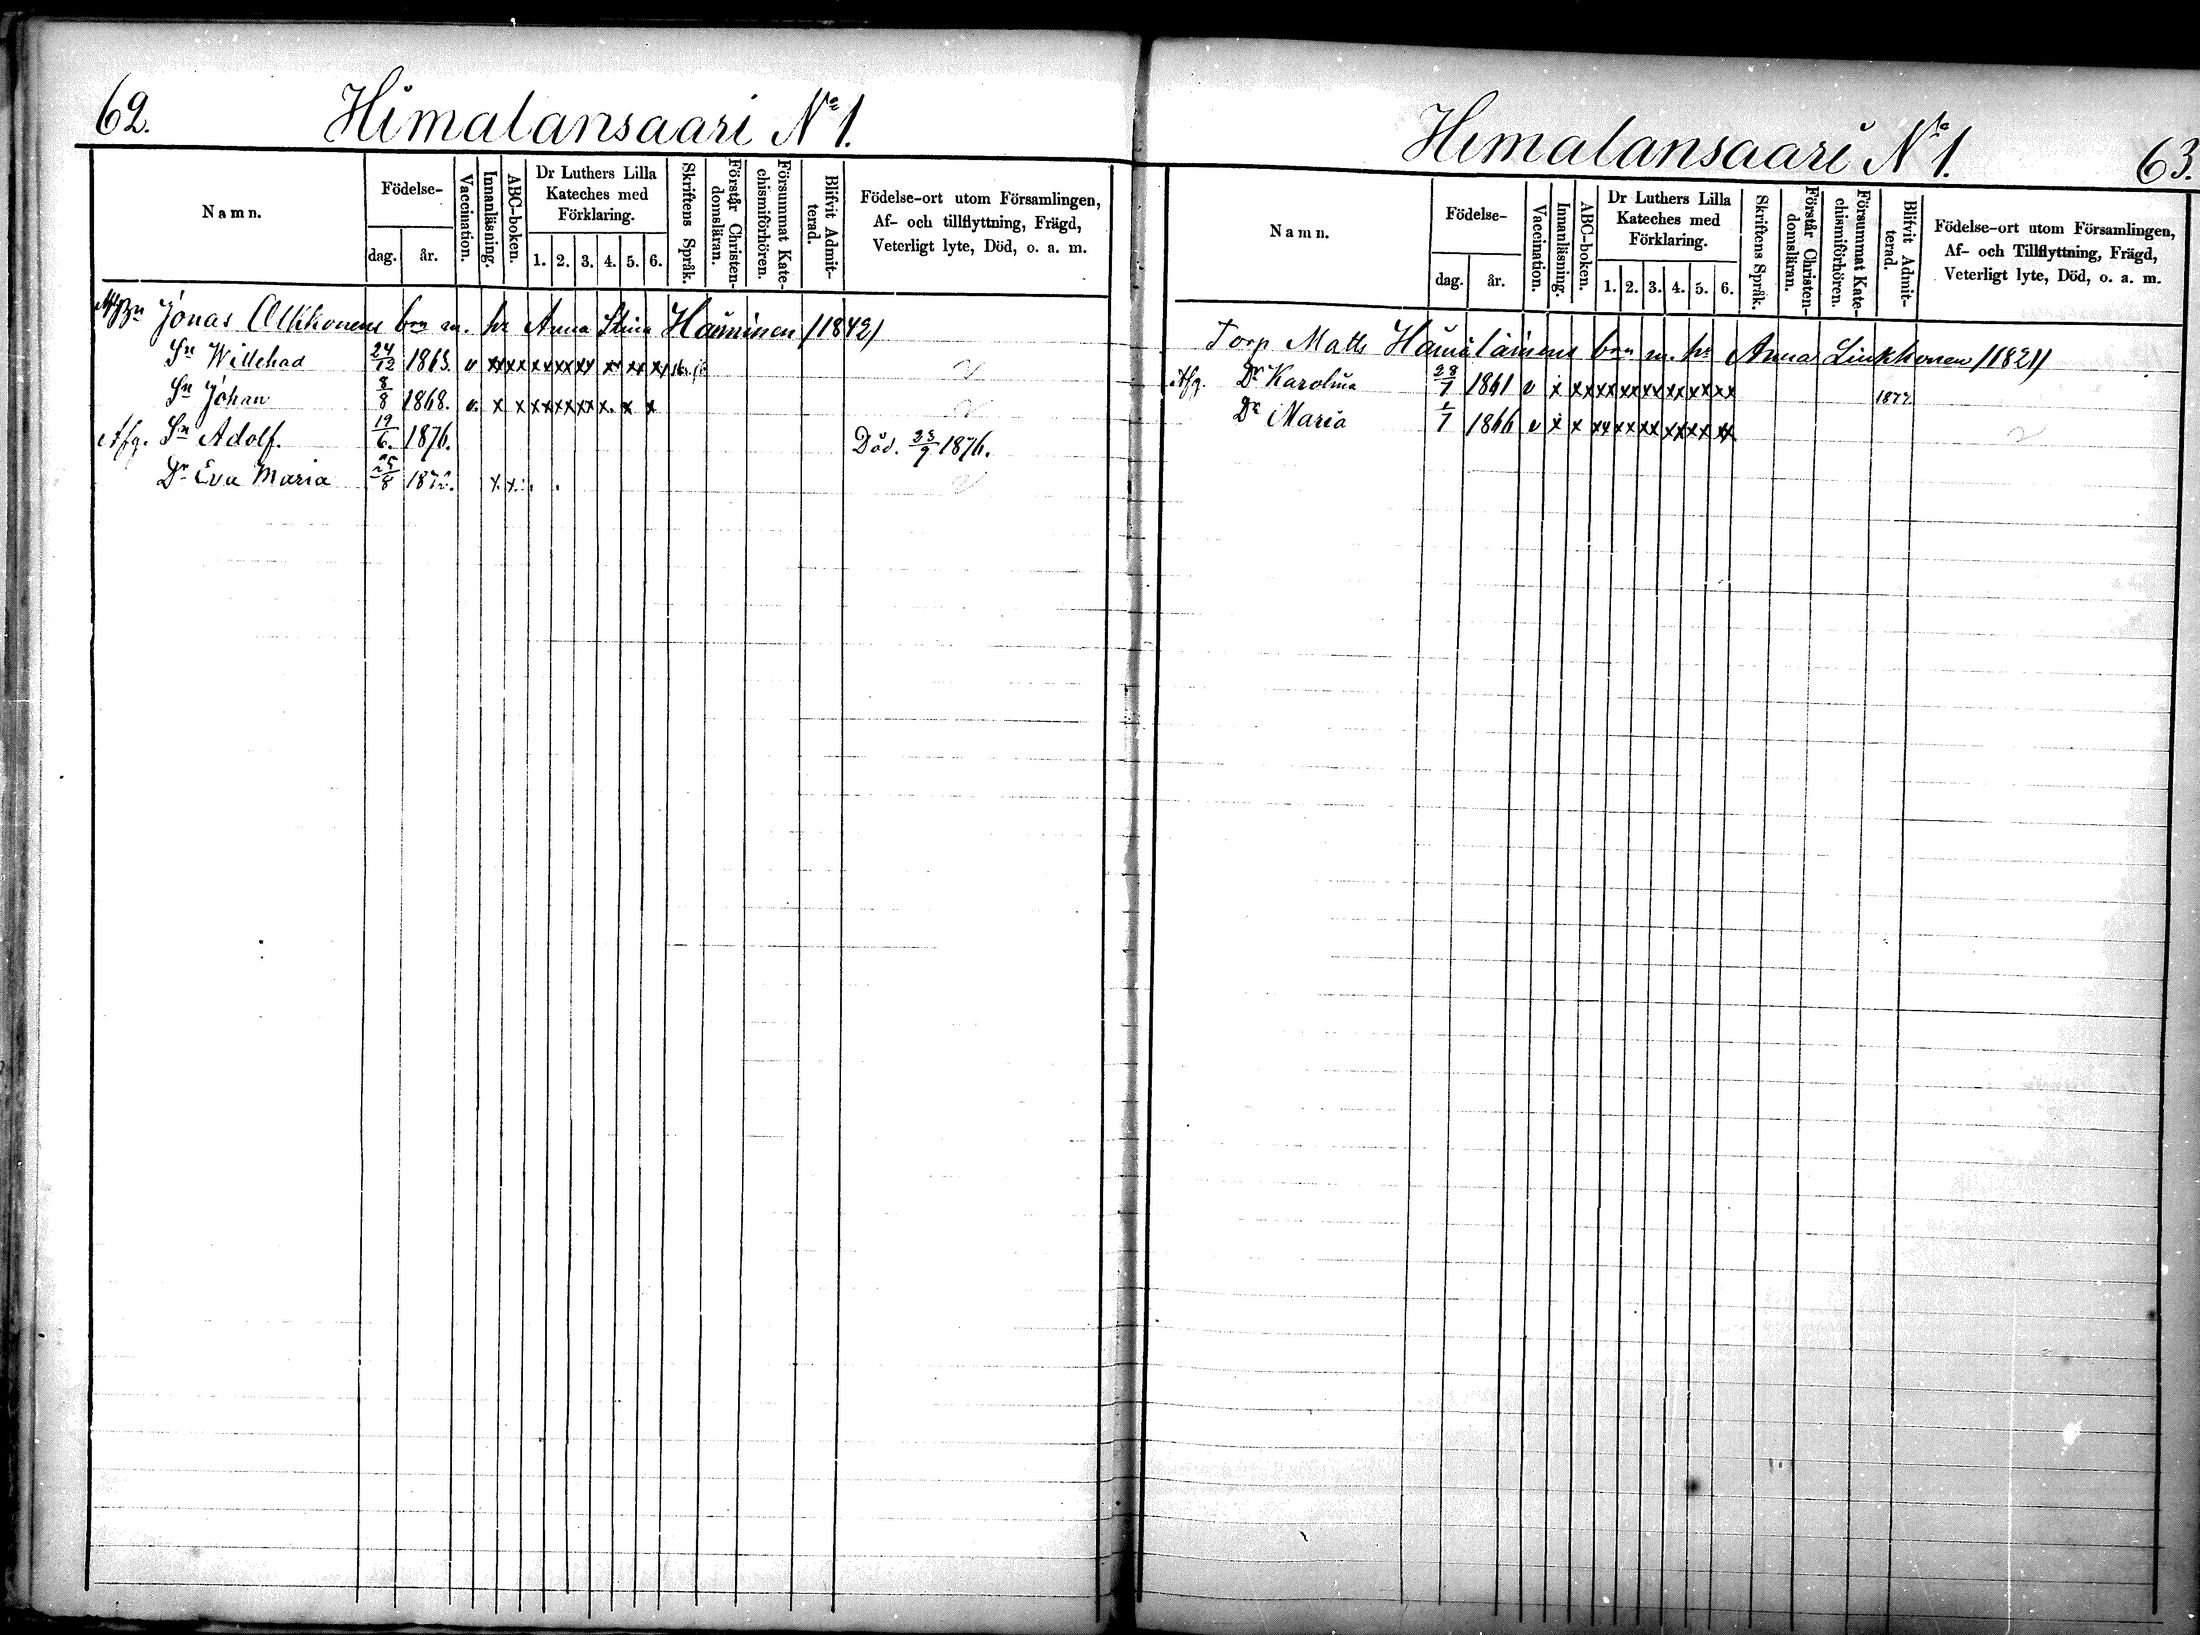 62.
Himalansaari No 1.
Namn.
Födelse-
dag.
år.
Vaccination.
Innanläsning.
ABC-boken.
Dr Luthers Lilla
Kateches med
Förklaring.
1. 2. 3. 4. 5. 6.
Skriftens Språk.
Förstår Christen-
domsläran.
Försummat Kate-
chismiförhören.
Blifvit Admit-
terad.
Födelse-ort utom Församlingen,
Af- och tillflyttning, Frägd,
Veterligt lyte, Död, o. a. m.
Jonas Olkkonens brn m. hr Anna Stina Häninen /1842/
Sn Willehad 24/12 1863. v xx xx xx xx xx x xx xx
Sn Johan 8/8 1868. v. x x xx xx xx x. x x
Afg. Sn Adolf. 19/6. 1876. Död. 23/9 1876.
Dr Eva Maria 25/8 x. x.
Himalansaari No 1.
63.
Namn.
Födelse-
dag.
år.
Vaccination.
Innanläsning.
ABC-boken.
Dr Luthers Lilla
Kateches med
Förklaring.
1. 2. 3. 4. 5. 6.
Skriftens Språk.
Förstår Christen-
domsläran.
Försummat Kate-
chismiförhören.
Blifvit Admit-
terad.
Födelse-ort utom Församlingen,
Af- och Tillflyttning, Frägd,
Veterligt lyte, Död, o. a. m.
Torp Matts Hämäläinens brn m. hr Anna Liukkonen /1821/
Afg. Dr Karolina 28/7 1861 v x xx xx xx xx xx xx xx 1877
Dr Maria 1866 v x x xx xx xx xx xx xx